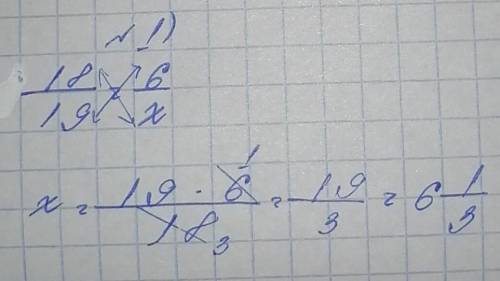 № 1)
18/19 = 6/x
x = 19 · 6/18 = 19/3 = 6 1/3
1
3